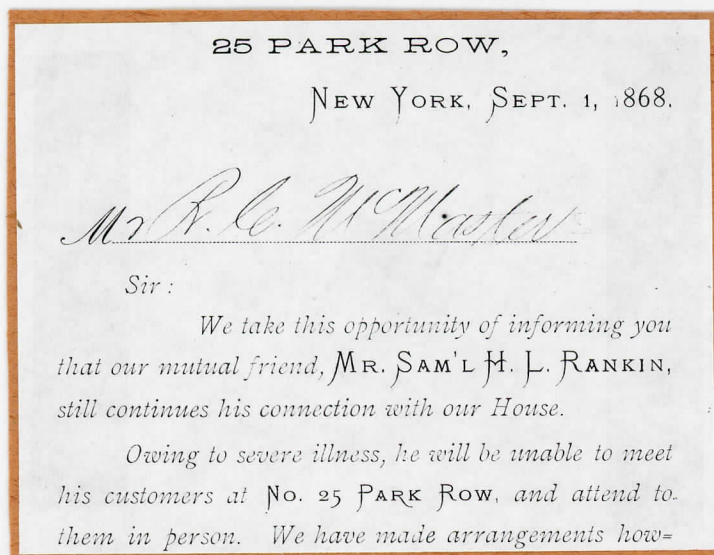 25 PARK ROW,
NEW YORK, SEPT. 1, 1868.
Mr R. C. McMaster
Sir :
We take this opportunity of informing you
that our mutual friend, MR. SAM'L H. L. RANKIN,
still continues his connection with our House.
Owing to severe illness, he will be unable to meet
his customers at No. 25 PARK ROW, and attend to
them in person. We have made arrangements how=